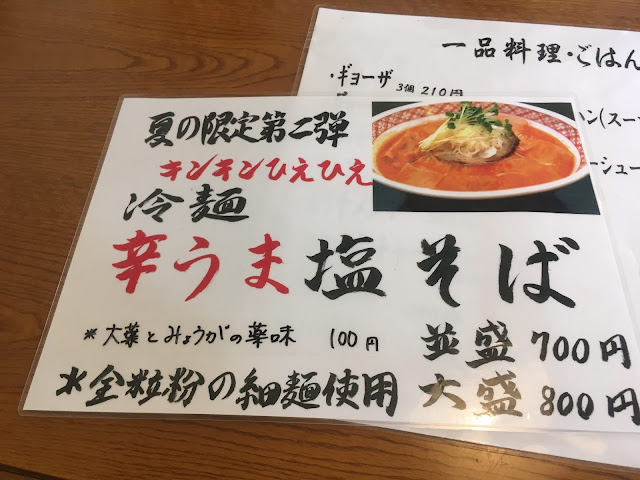 一品料理・ごはん
・ギョーザ 3個 210円
ン(スー
ーシュー
夏の限定第二弾
キンキンひえひえ
冷麺
辛うま塩そば
※大葉とみょうがの薬味 100円
並盛 700円
※全粒粉の細麺使用 大盛 800円